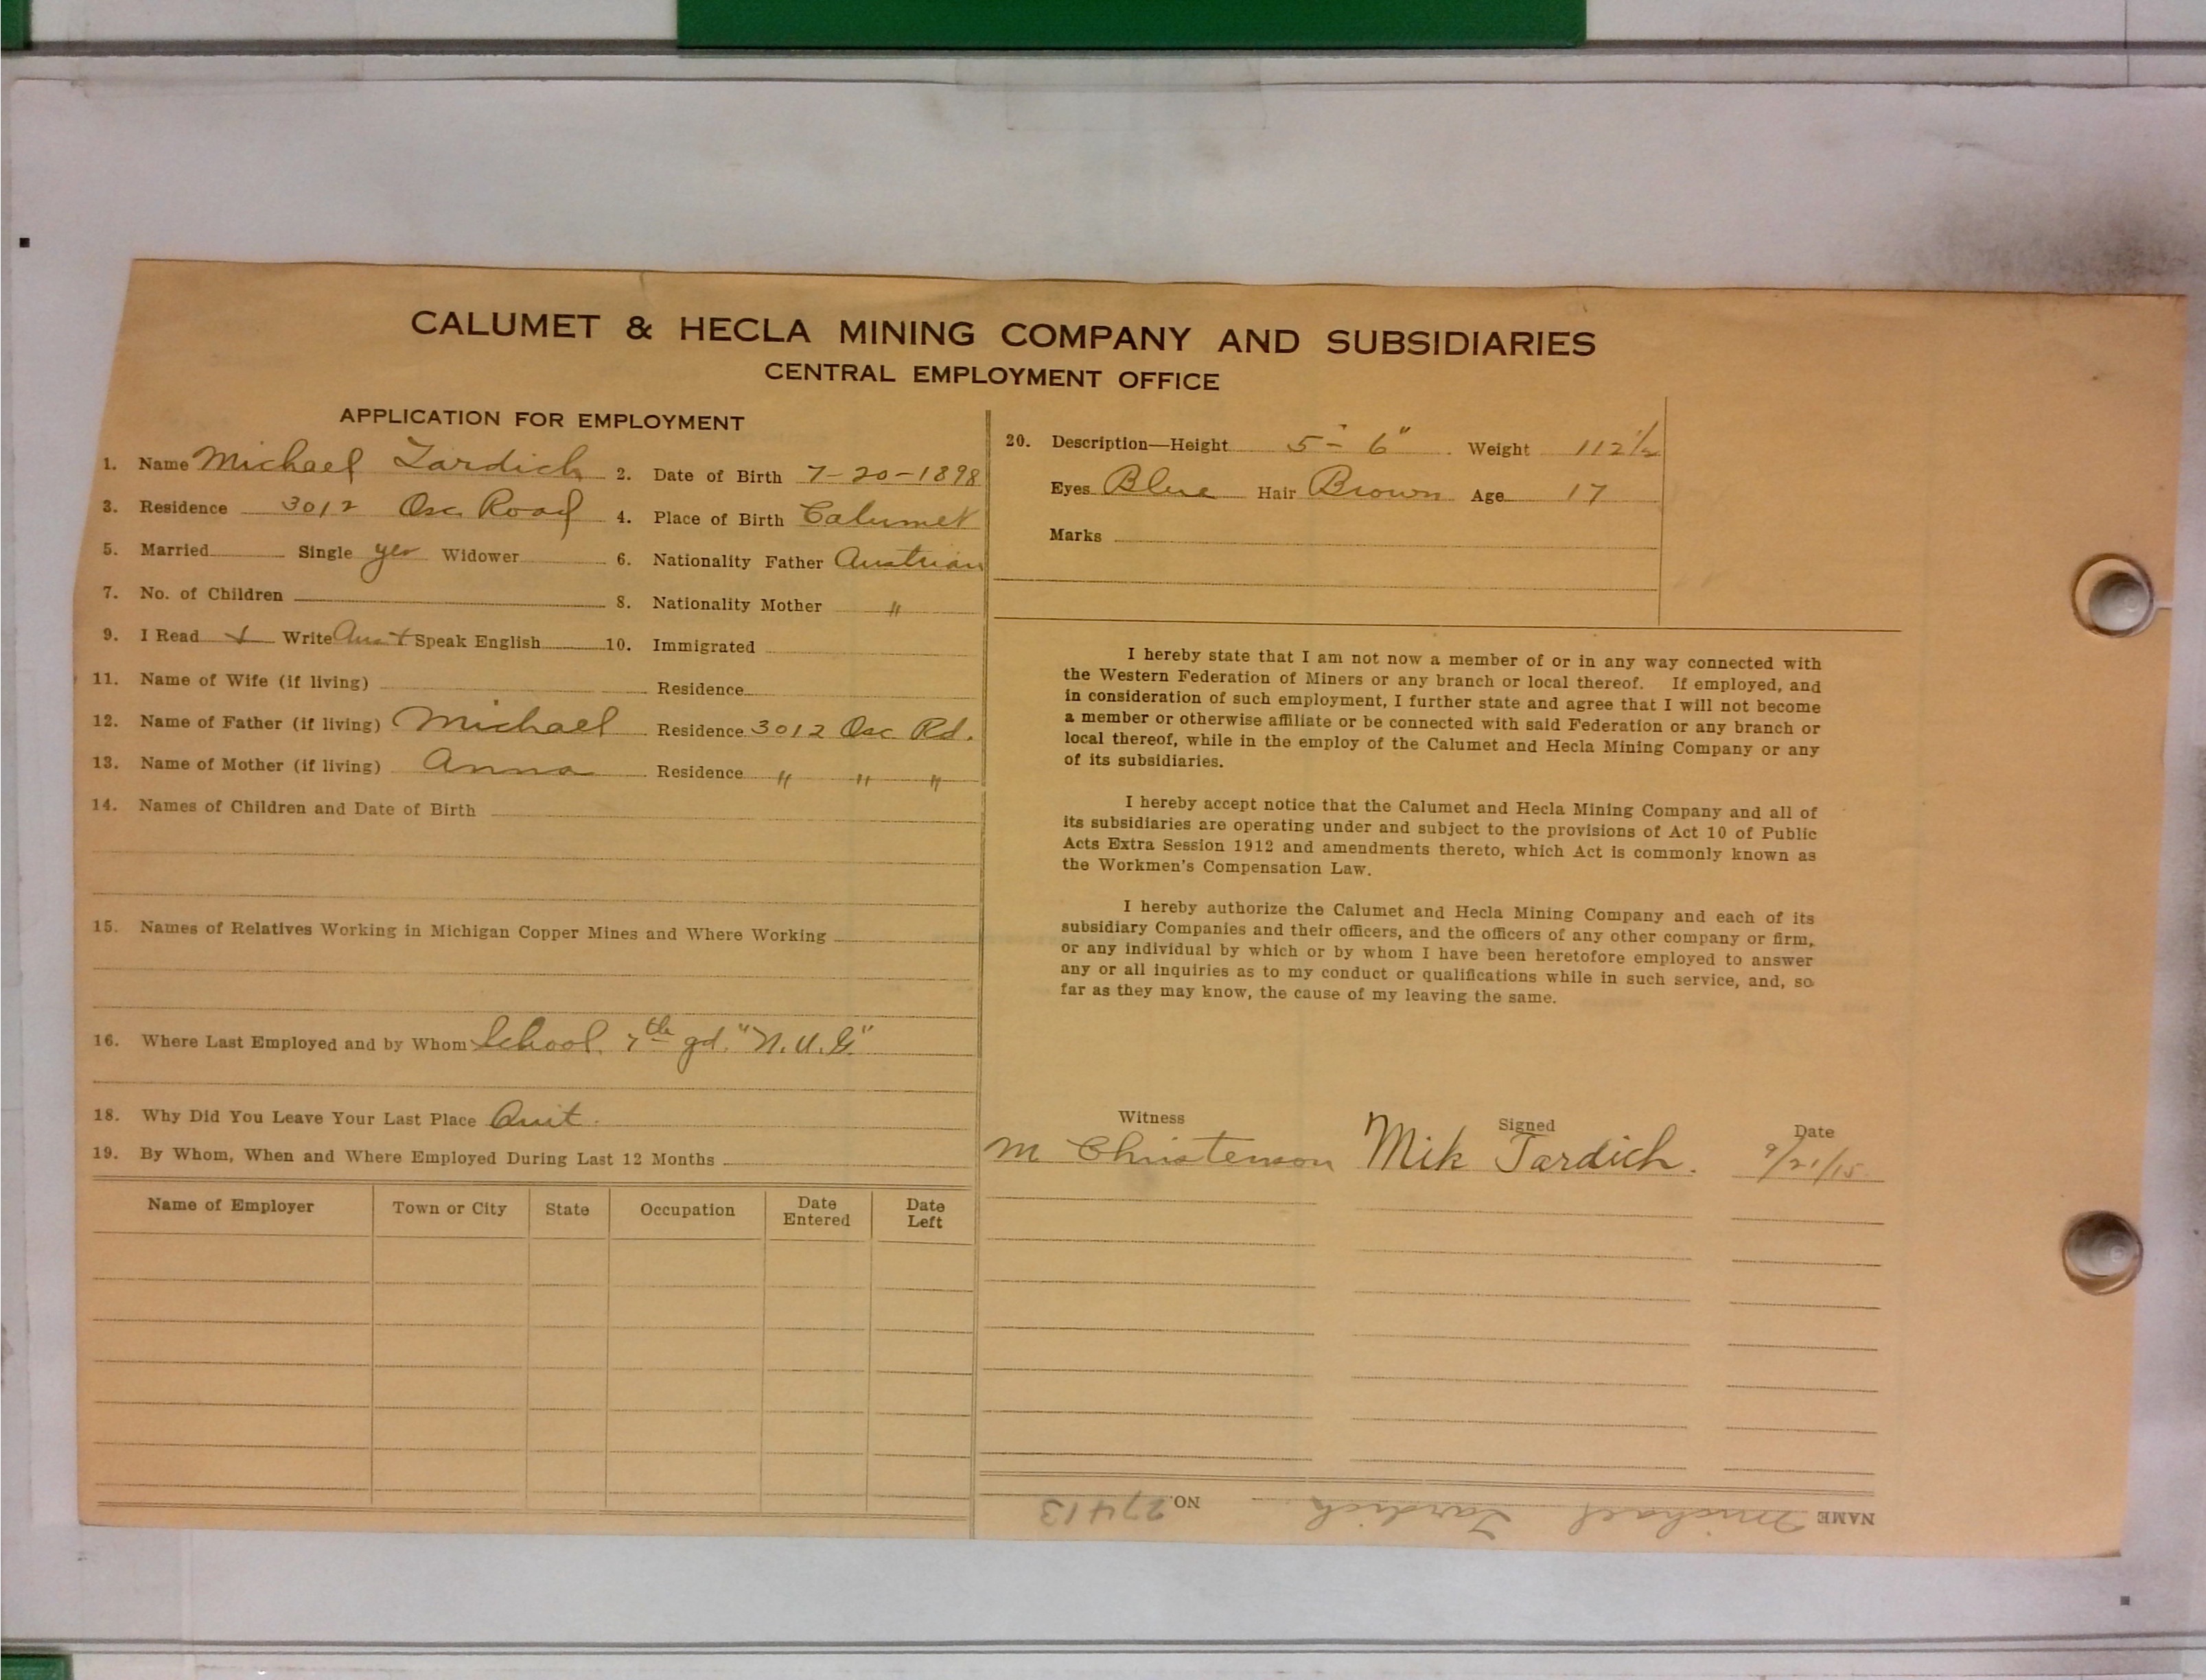 CALUMET & HECLA MINING COMPANY AND SUBSIDIARIES
CENTRAL EMPLOYMENT OFFICE
APPLICATION FOR EMPLOYMENT
1. Name Michael Tardich 2. Date of Birth 7-20-1898
3. Residence 3012 Osc. Road 4. Place of Birth Calumet
5. Married Single yes Widower 6. Nationality Father Austrian
7. No. of Children 8. Nationality Mother "
9. I Read + Write Aust Speak English 10. Immigrated
11. Name of Wife (if living) Residence
12. Name of Father (if living) Michael Residence 3012 Osc Rd.
13. Name of Mother (if living) Anna Residence " " "
14. Names of Children and Date of Birth
15. Names of Relatives Working in Michigan Copper Mines and Where Working
16. Where Last Employed and by Whom School 7th gd. "N.U.G."
18. Why Did You Leave Your Last Place Quit.
19. By Whom, When and Where Employed During Last 12 Months
Name of Employer Town or City State Occupation Date Entered Date Left
20. Description—Height 5' - 6" Weight 112½
Eyes Blue Hair Brown Age 17
Marks
I hereby state that I am not now a member of or in any way connected with
the Western Federation of Miners or any branch or local thereof. If employed, and
in consideration of such employment, I further state and agree that I will not become
a member or otherwise affiliate or be connected with said Federation or any branch or
local thereof, while in the employ of the Calumet and Hecla Mining Company or any
of its subsidiaries.
I hereby accept notice that the Calumet and Hecla Mining Company and all of
its subsidiaries are operating under and subject to the provisions of Act 10 of Public
Acts Extra Session 1912 and amendments thereto, which Act is commonly known as
the Workmen's Compensation Law.
I hereby authorize the Calumet and Hecla Mining Company and each of its
subsidiary Companies and their officers, and the officers of any other company or firm,
or any individual by which or by whom I have been heretofore employed to answer
any or all inquiries as to my conduct or qualifications while in such service, and, so
far as they may know, the cause of my leaving the same.
Witness Signed Date
M Christenson Mik Tardich. 9/21/15
NAME Michael Tardich NO. 27413